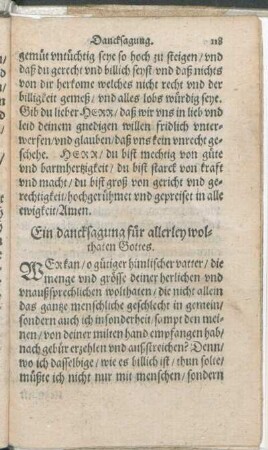 Dancksagung. 118
gemüt vntüchtig seye so hoch zu steigen / vnd
daß du gerecht vnd billich seyst vnd daß nichts
von dir herkome welches nicht recht vnd der
billigkeit gemeß / vnd alles lobs würdig seye.
Gib du lieber HERR / daß wir vns in lieb vnd
leid deinem gnedigen willen fridlich vnter-
werfen / vnd glauben / daß vns kein vnrecht ge-
schehe. HERR / du bist mechtig von güte
vnd barmhertzigkeit / du bist starck von kraft
vnd macht / du bist groß von gericht vnd ge-
rechtigkeit / hochgerühmet vnd gepreiset in alle
ewigkeit / Amen.
Ein dancksagung für allerley wol-
thaten Gottes.
WEr kan / o gütiger himlischer vatter / die
menge vnd grösse deiner herlichen vnd
vnaußsprechlichen wolthaten / die nicht allein
das gantze menschliche geschlecht in gemein /
sondern auch ich in sonderheit / sampt den mei-
nen / von deiner milten hand empfangen hab /
nach gebür erzehlen vnd ausstreichen? Denn /
wo ich dasselbige / wie es billich ist / thun solte /
müßte ich nicht nur mit menschen / sondern